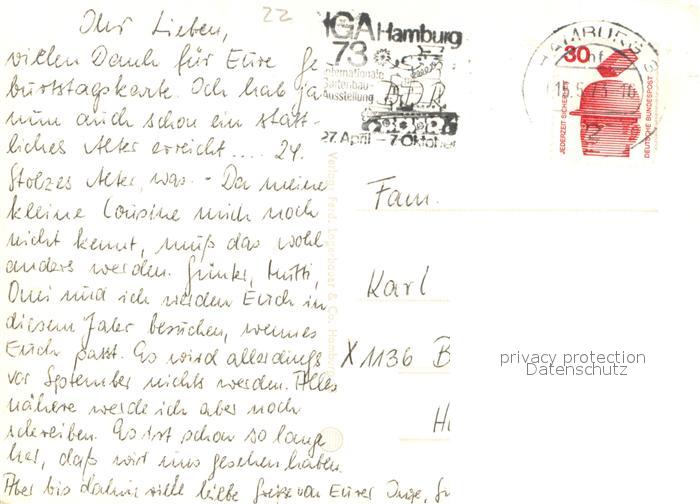 Ihr Lieben,
vielen Dank für Eure Ge-
burtstagskarte. Ich hab ja
nun auch schon ein statt-
liches Alter erreicht .... 24.
Stolzes Alter, was. - Da meine
kleine Cousine mich noch
nicht kennt, muß das wohl
anders werden. Günter, Mutti,
Omi und ich werden Euch in
diesem Jahr besuchen, wenn es
Euch passt. Es wird allerdings
vor September nichts werden. Alles
nähere werde ich aber noch
schreiben. Es ist schon so lange
her, daß wir uns gesehen haben.
Aber bis dahin viele liebe Grüße von Eurer Inge,
22
IGA Hamburg
73
Internationale
Gartenbau-
Ausstellung
27. April - 7. Oktober
HAMBURG
15.5.73
30
JEDERZEIT SICHERHEIT
DEUTSCHE BUNDESPOST
Verlag Ferd. Lagerbauer & Co. Hamburg
Fam.
Karl
X 1136 B
H
privacy protection
Datenschutz